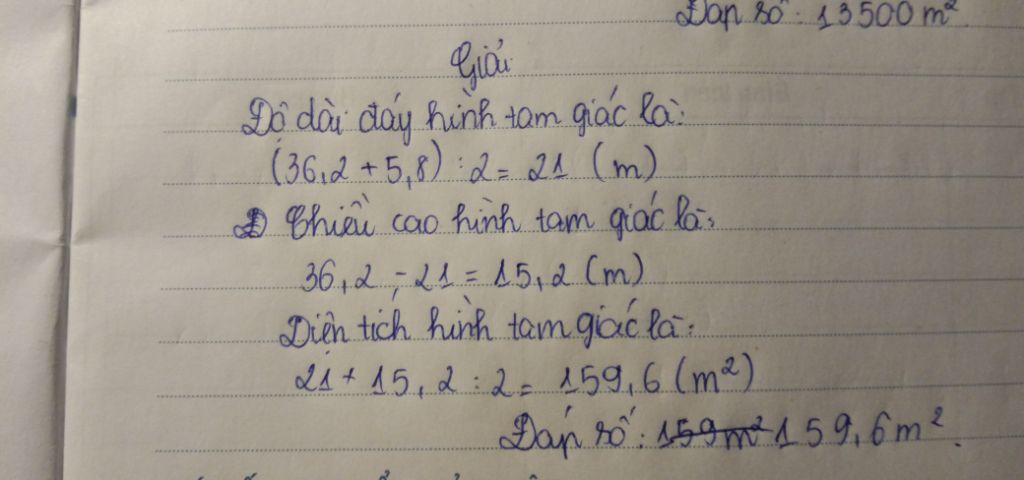 Đáp số : 13500 m²
Giải
Độ dài đáy hình tam giác là:
(36,2 + 5,8) : 2 = 21 (m)
Chiều cao hình tam giác là:
36,2 - 21 = 15,2 (m)
Diện tích hình tam giác là:
21 + 15,2 : 2 = 159,6 (m²)
Đáp số : 159m² 159,6m².